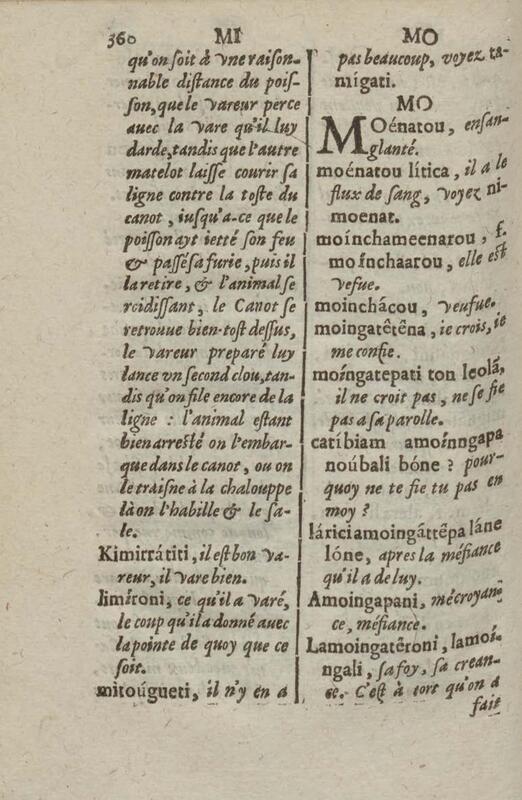 360 MI MO
qu'on soit à vne raison-
nable distance du pois-
son, que le vareur perce
auec la vare qu'il luy
darde, tandis que l'autre
matelot laisse courir sa
ligne contre la toste du
canot, iusqu'a-ce que le
poisson ayt ietté son feu
& passé sa furie, puis il
la retire, & l'animal se
roidissant, le Canot se
retrouue bien-tost dessus,
le vareur preparé luy
lance vn second clou, tan-
dis qu'on file encore de la
ligne : l'animal estant
bien arresté on l'embar-
que dans le canot, ou on
le traisne à la chalouppe
là on l'habille & le sa-
le.
Kimirrátiti, il est bon va-
reur, il vare bien.
Iimíroni, ce qu'il a varé,
le coup qu'il a donné auec
la pointe de quoy que ce
soit.
mitoúgueti, il n'y en a
pas beaucoup, voyez ta-
mígati.
MO
MOénatou, ensan-
glanté.
moénatou lítica, il a le
flux de sang, voyez ni-
moenat.
moínchameenarou, f.
moínchaarou, elle est
vefue.
moinchácou, veufue.
moingatêtêna, ie crois, ie
me confie.
moíngatepati ton leolá,
il ne croit pas, ne se fie
pas a sa parolle.
catíbiam amoínngapa
noúbali bóne ? pour-
quoy ne te fie tu pas en
moy ?
láriciamoingáttêpa láne
lóne, apres la méfiance
qu'il a de luy.
Amoingapani, mécroyan-
ce, méfiance.
Lamoingatêroni, lamoí-
ngali, sa foy, sa crean-
ce. C'est à tort qu'on a
fait